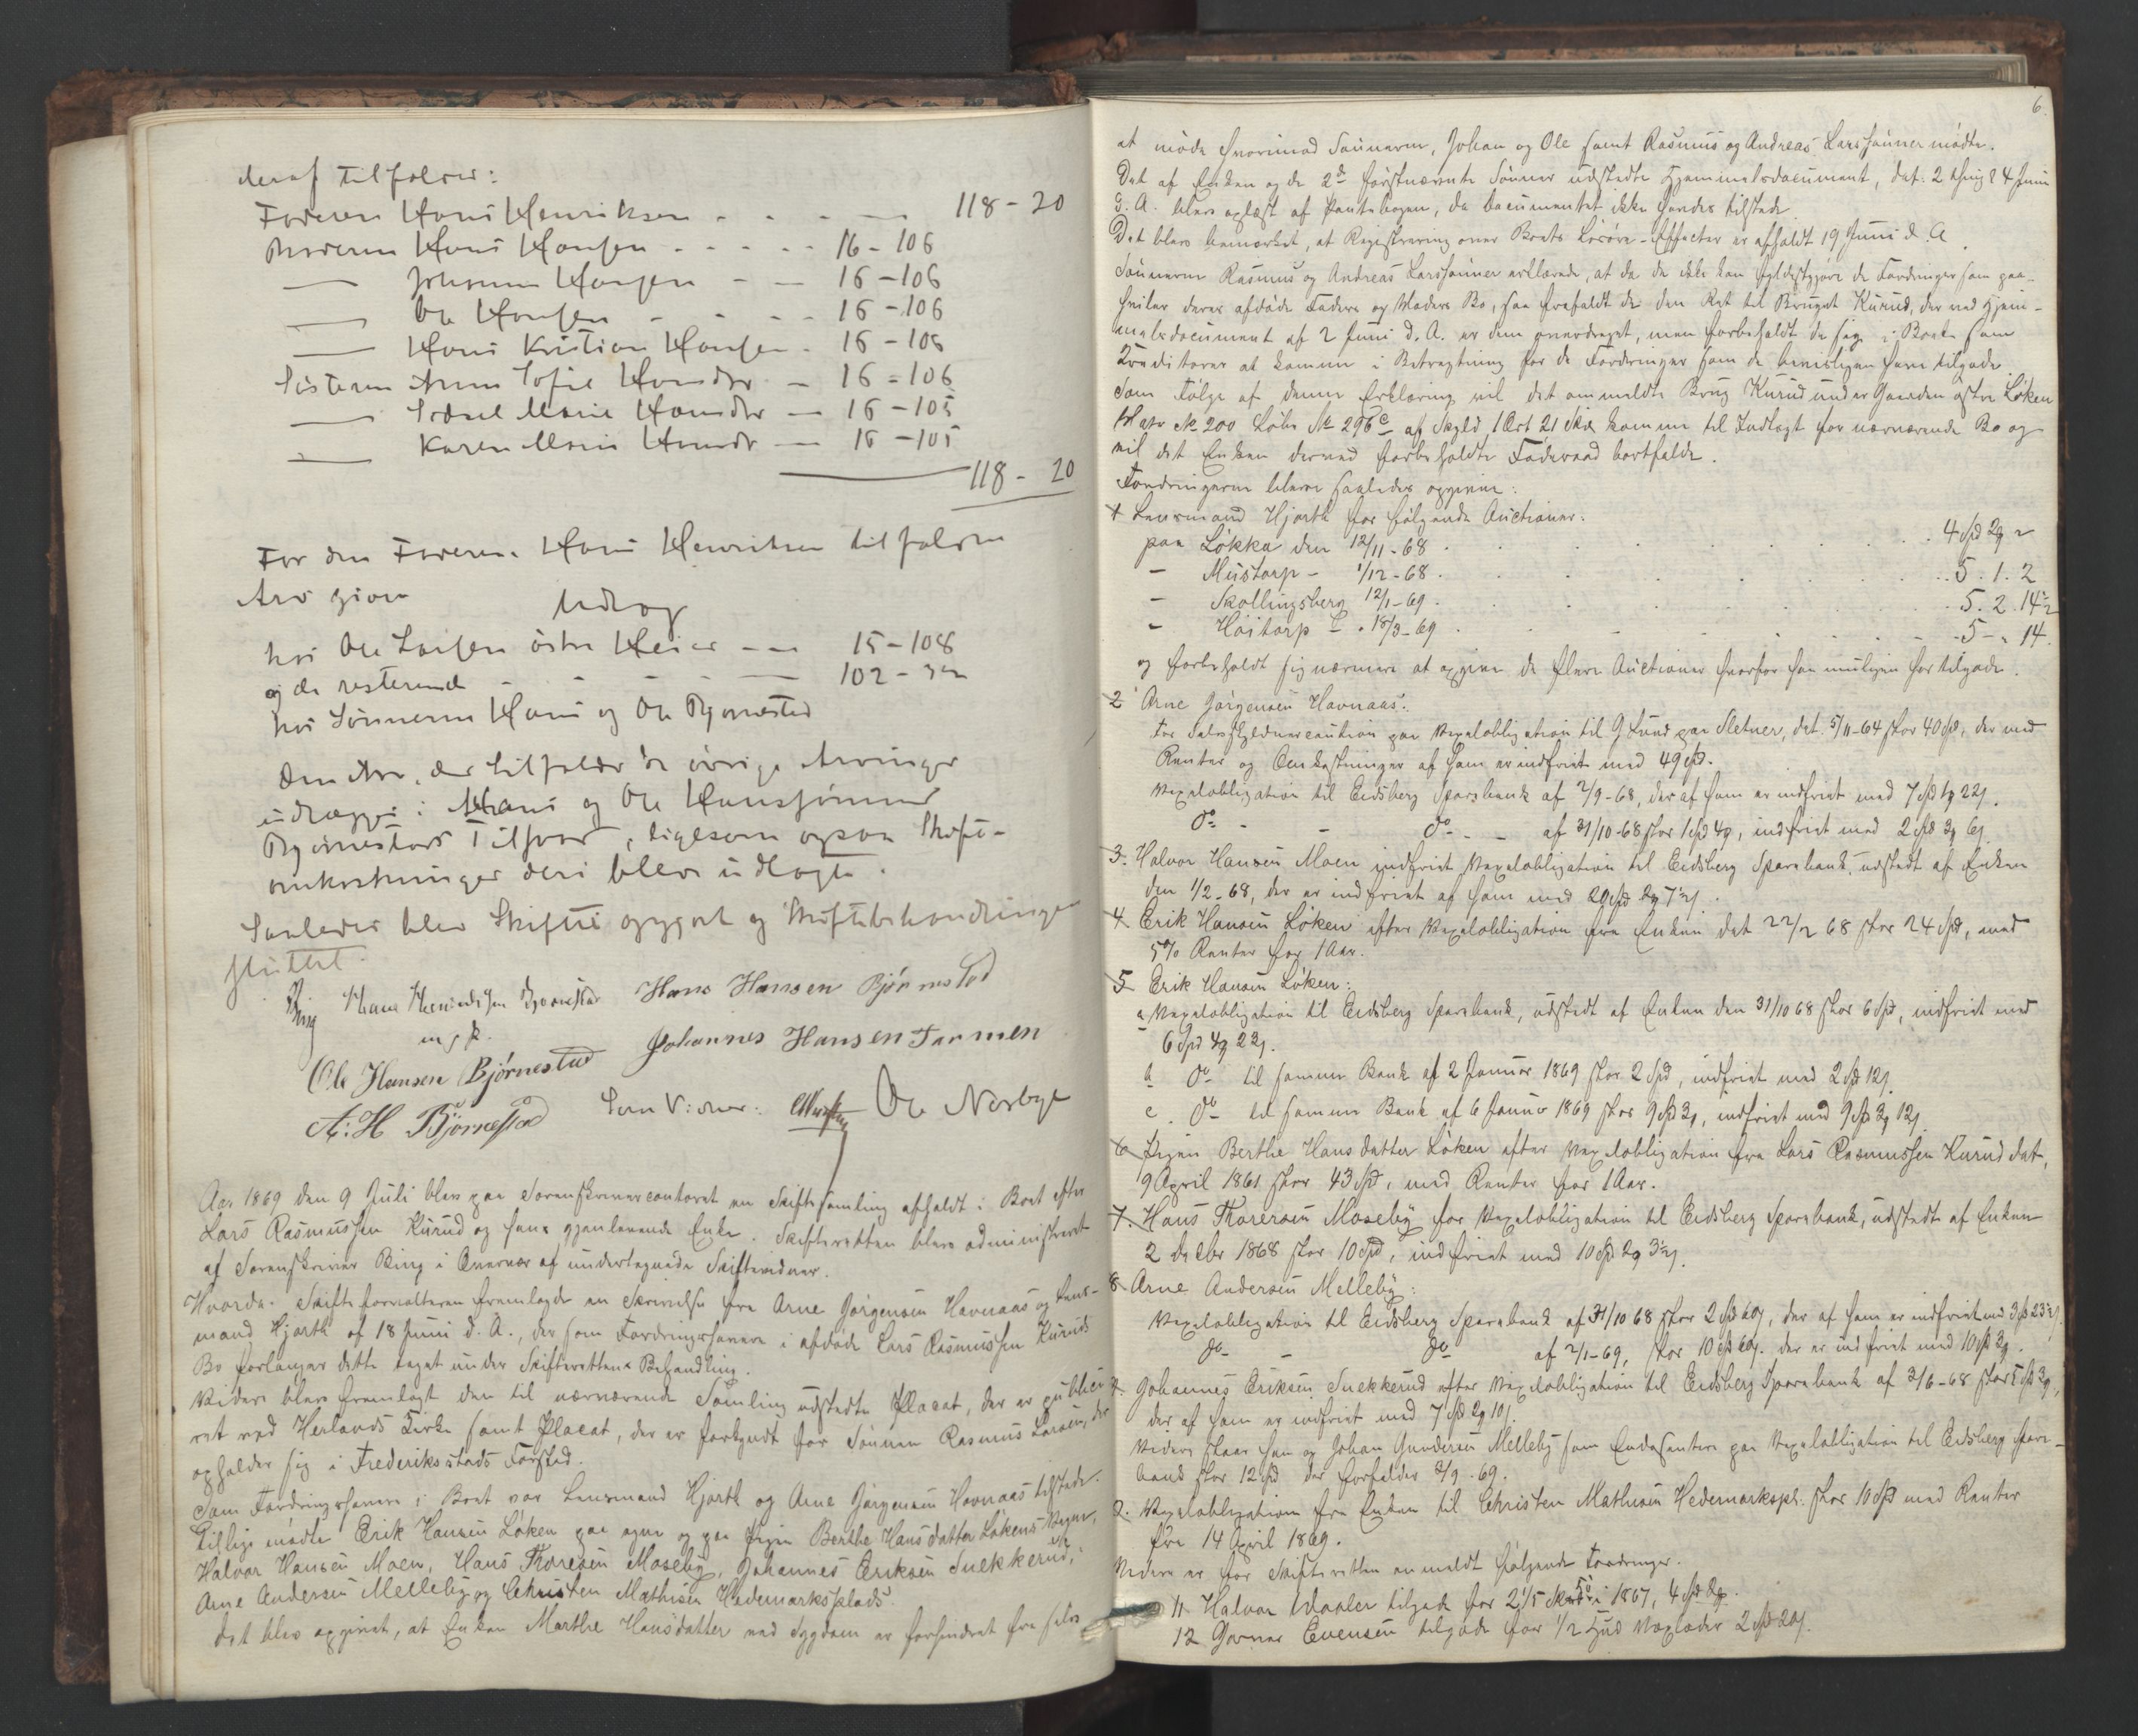 deraf tilfalder:
Faderen Hans Henriksen - - - — 118 - 20
Broderen Hans Hansen - - - - - 16 - 106
— Johannes Hansen - — 16 - 106
— Ole Hansen - - - - 16 - 106
— Hans Kristian Hansen - 16 - 106
Søsteren Anne Sofie Hansdtr — 16 - 106
— Marie Hansdtr — 16 - 105
— Karen Marie Hansdr — 16 - 105
118 - 20
For den Faderen Hans Henriksen tilfaldne
Arv gives Udlæg
hos Ole Larsen østre Heier - — 15 - 108
og de resterende - - - - — 102 - 32
hos Sønnerne Hans og Ole Bjørnestad
Den Arv, der tilfalder de øvrige Arvinger
udlægges i Hans og Ole Hanssønner
Bjørnestads Tilsvar, ligesom ogsaa Skifte-
omkostninger deri blev udlagte.
Saaledes blev Skiftet opgjort og Skiftebehandlingen
sluttet.
Bing Hans Henriksen Bjørnestad Hans Hansen Bjørnestad
m. f. P.
Ole Hansen Bjørnestad Johannes Hansen Tarmen
A: H Bjørnestad Som Vidner: Ole Norbye
Aar 1869 den 9 Juli blev paa Sorenskrivercontoret en Skiftesamling afholdt i Boet efter
Lars Rasmussen Kurud og hans gjenlevende Enke. Skifteretten blev administreret
af Sorenskriver Bing i Overvær af undertegnede Skiftevidner.
Hvorda Skifteforvalteren fremlagde en Skrivelse fra Arne Jørgensen Havnaas og Lens-
mand Hjorth af 18 Juni d. A., der som Fordringshavere i afdøde Lars Rasmussen Kuruds
Bo forlanger dette taget under Skifterettens Behandling.
Videre blev fremlagt den til nærværende Samling udstedte Placat, der er publice-
ret ved Herlands Kirke samt Placat, der er forkyndt for Sønnen Rasmus Larsen, der
opholder sig i Frederiksstads Forstad.
Som Fordringshavere i Boet var Lensmand Hjorth og Arne Jørgensen Havnaas tilstede.
Tillige mødte Erik Hansen Løken paa egne og paa Pigen Berthe Hansdatter Løkens Vegne,
Halvor Hansen Moen, Hans Thoresen Moseby, Johannes Eriksen Snekkerud,
Arne Andersen Melleby og Christen Mathisen Hedemarksplads.
Det blev opgivet, at Enken Marthe Hansdatter ved Sygdom er forhindret fra selv
6.
at møde hvorimod Sønnerne, Johan og Ole samt Rasmus og Andreas Larssønner mødte.
Det af Enken og de 2de førstnævnte Sønner udstedte Hjemmelsdocument, dat. 2 thingl 4 Juni
d. A. blev oplæst af Pantebogen, da Documentet ikke havdes tilstede
Det blev bemærket, at Registrering over Boets Løsøre-Effecter er afholdt 19 Juni d. A.
Sønnerne Rasmus og Andreas Larssønner erklærede, at da de ikke kan fyldestgjøre de Fordringer som paa-
hviler deres afdøde Faders og Moders Bo, saa frafaldt de den Ret til Bruget Kurud, der ved Hjem-
melsdocument af 2 Juni d. A. er dem overdraget, men forbeholdt de sig i Boet som
Creditorer at komme i Betragtning for de Fordringer som de beviisligen have tilgode.
Som Følge af denne Erklæring vil det ommeldte Brug Kurud under Gaarden østre Løken
Matr No 200 Løbe No 296c af Skyld 1 Ort 21 Sk komme til Indtægt for nærværende Bo og
vil det Enken derved forbeholdte Føderaad bortfalde.
Fordringerne bleve saaledes opgivne:
1 Lensmand Hjorth for følgende Auctioner:
paa Løkka den 12/11 - 68 . . . . 4 Spd 2 2
- Mustorp - 1/12 - 68 . . . . 5. 1. 2
- Skollingsberg 12/1 - 69 . . . . 5. 2. 14½
- Høitorp - 18/3 - 69 . . . . 5 - " 14.
og forbeholdt sig nærmere at opgive de flere Auctioner hvorfor han muligen har tilgode.
2 Arne Jørgensen Havnaas:
For Selvskyldnercaution paa Vexelobligation til G Lund paa Sletner, dat. 5/11-64 stor 40 Spd, der med
Renter og Omkostninger af ham er indfriet med 49 Spd.
Vexelobligation til Eidsberg Sparebank af 2/9-68, der af ham er indfriet med 7 Spd 1 22 s.
do - - do - - af 31/10-68 stor 1 Spd 4, indfriet med 2 Spd 3 6 s
3. Halvor Hansen Moen indfriet Vexelobligation til Eidsberg Sparebank, udstedt af Enken
den 1/2-68, der er indfriet af ham med 29 Spd 2 7½ s.
4 Erik Hansen Løken efter Vexelobligation fra Enken dat 22/2 68 stor 24 Spd, med
5% Renter for 1 Aar.
5 Erik Hansen Løken:
a Vexelobligation til Eidsberg Sparebank, udstedt af Enken den 31/10 68 stor 6 Spd, indfriet med
6 Spd 4 22 s.
b do til samme Bank af 2 Januar 1869 stor 2 Spd, indfriet med 2 Spd 12 s
c. do til samme Bank af 6 Januar 1869 stor 9 Spd 3, indfriet med 9 Spd 3 12 s
6 Pigen Berthe Hansdatter Løken efter Vexelobligation fra Lars Rasmussen Kurud dat.
9 April 1861 stor 43 Spd, med Renter for 1 Aar.
7. Hans Thoresen Moseby for Vexelobligation til Eidsberg Sparebank, udstedt af Enken
2 Decbr 1868 stor 10 Spd, indfriet med 10 Spd 2 3½ s.
8 Arne Andersen Melleby:
Vexelobligation til Eidsberg Sparebank af 31/10 68 stor 2 Spd 60 s, der af ham er indfriet med 3 Spd 23½ s
do - do af 2/1-69, stor 10 Spd 60 s. der er indfriet med 10 Spd 3.
9. Johannes Eriksen Snekkerud efter Vexelobligation til Eidsberg Sparebank af 3/6-68 stor 5 Spd 3,
der af ham er indfriet med 7 Spd 2 10 s.
Videre staar han og Johan Gundersen Melleby som Endosenter paa Vexelobligation til Eidsberg Spare-
bank stor 12 Spd der forfalder 3/9-69.
Vexelobligation fra Enken til Christen Mathisen Hedemarkspl. stor 10 Spd med Renter
fra 14 April 1869.
Videre er for Skifteretten anmeldt følgende Fordringer.
11 Halvor tilgode for i 1867, 4 Spd
12 Gunner Evensen tilgode for 1/2 Hud 2 Spd 20 s.